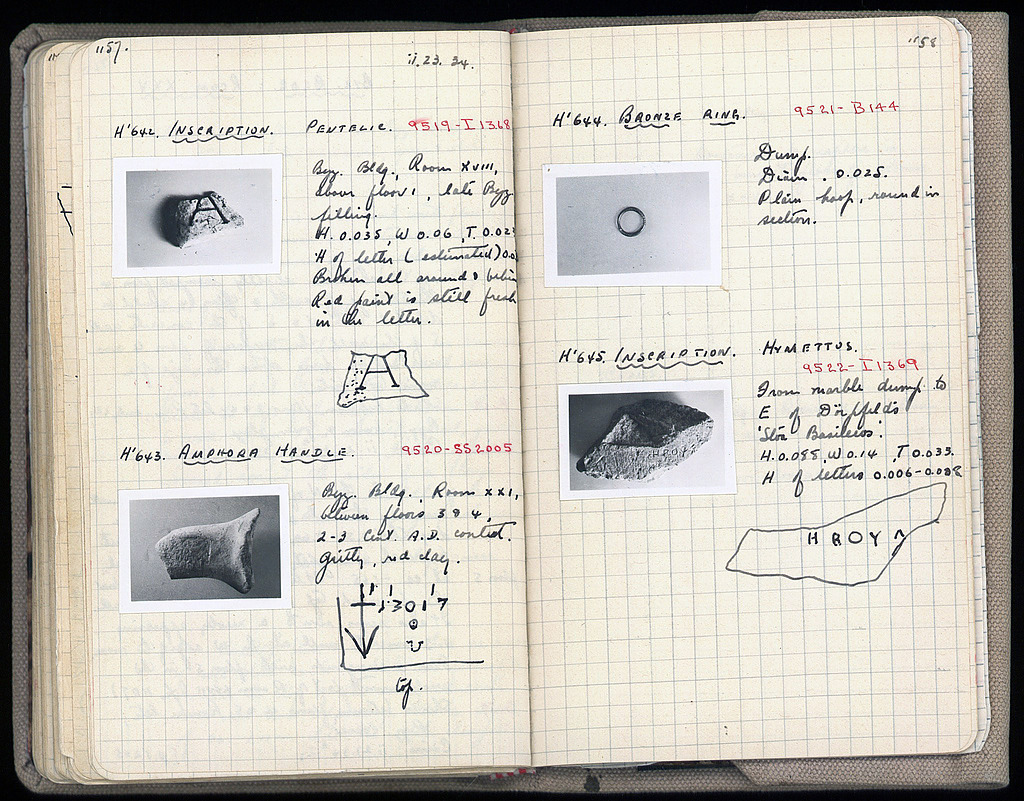 1157.
ii. 23. 34.
H'642. INSCRIPTION. PENTELIC. 9519-I1368
Byz. Bldg., Room XVIII,
above floor 1, late Byz
filling.
H. 0.035, W 0.06, T 0.02
H of letter (estimated) 0.0
Broken all around &
Red paint is still fresh
in the letter.
A
A
H'643. AMPHORA HANDLE. 9520-SS2005
Byz. Bldg. Room XXI,
between floors 3 & 4,
2-3 Cent. A.D. context.
Gritty, red clay.
top.
1158
H'644. BRONZE RING. 9521-B144
Dump.
Diam. 0.025.
Plain hoop, round in
section.
H'645. INSCRIPTION. HYMETTUS.
9522-I1369
From marble dump to
E of Dörpfeld's
'Stoa Basileios'.
H. 0.088, W 0.14, T 0.035.
H of letters 0.006-0.008
HROY
HROY